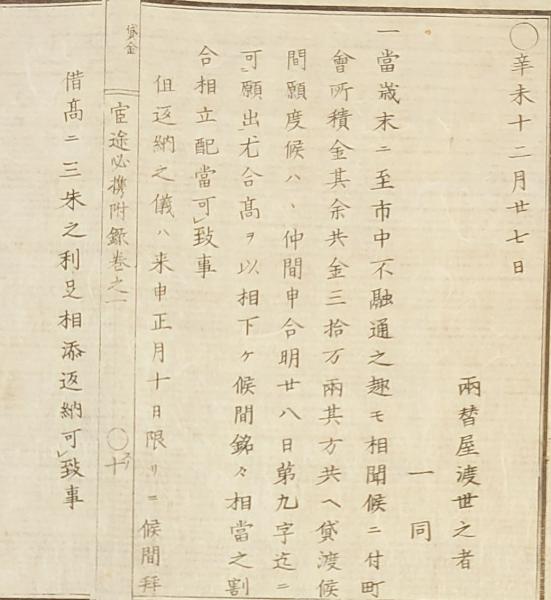 〇辛未十二月廿七日
兩替屋渡世之者
一同
一當歳末ニ至市中不融通之趣モ相聞候ニ付町
會所積金其余共金三拾万兩其方共ヘ貸渡候
間願度候ハヽ仲間申合明廿八日第九字迄ニ
可願出尤合高ヲ以相下ケ候間銘々相當之割
合相立配當可致事
但返納之儀ハ来申正月十日限リニ候間拜
貸金
宦途必携附録卷之一
〇十
借髙ニ三朱之利足相添返納可致事